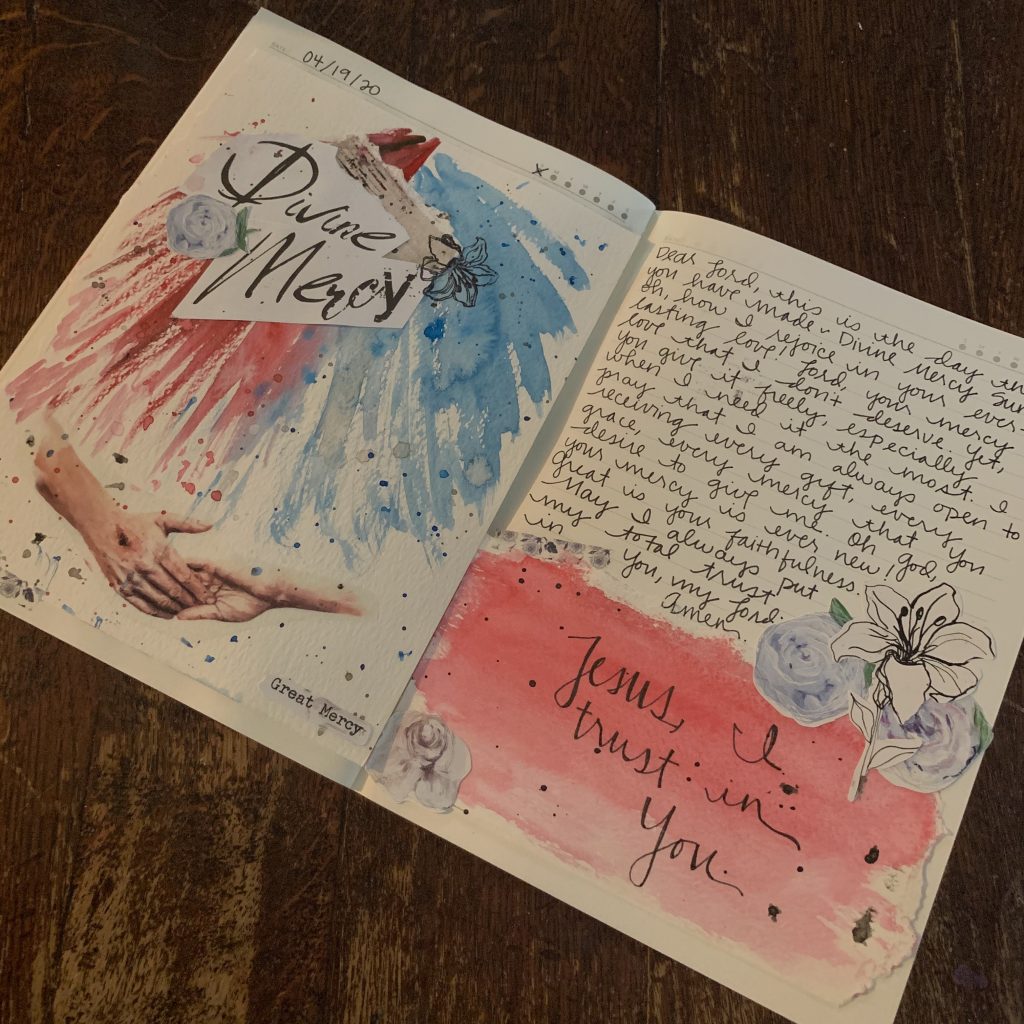 DATE
04/19/20
Divine
Mercy
Great Mercy
Dear Lord, this is the day that
you have made - Divine Mercy Sun
Oh, how I rejoice in your ever-
lasting love! Lord, your mercy
love that I don't deserve. Yet,
you give it freely, especially
when I need it the most. I
pray that I am always open to
receiving every gift, every
grace, every mercy that you
desire to give me. Oh God,
your mercy is ever new! God,
great is your faithfulness.
May I always put
my total trust
in you, my Lord.
Amen
Jesus, I
trust in
You.